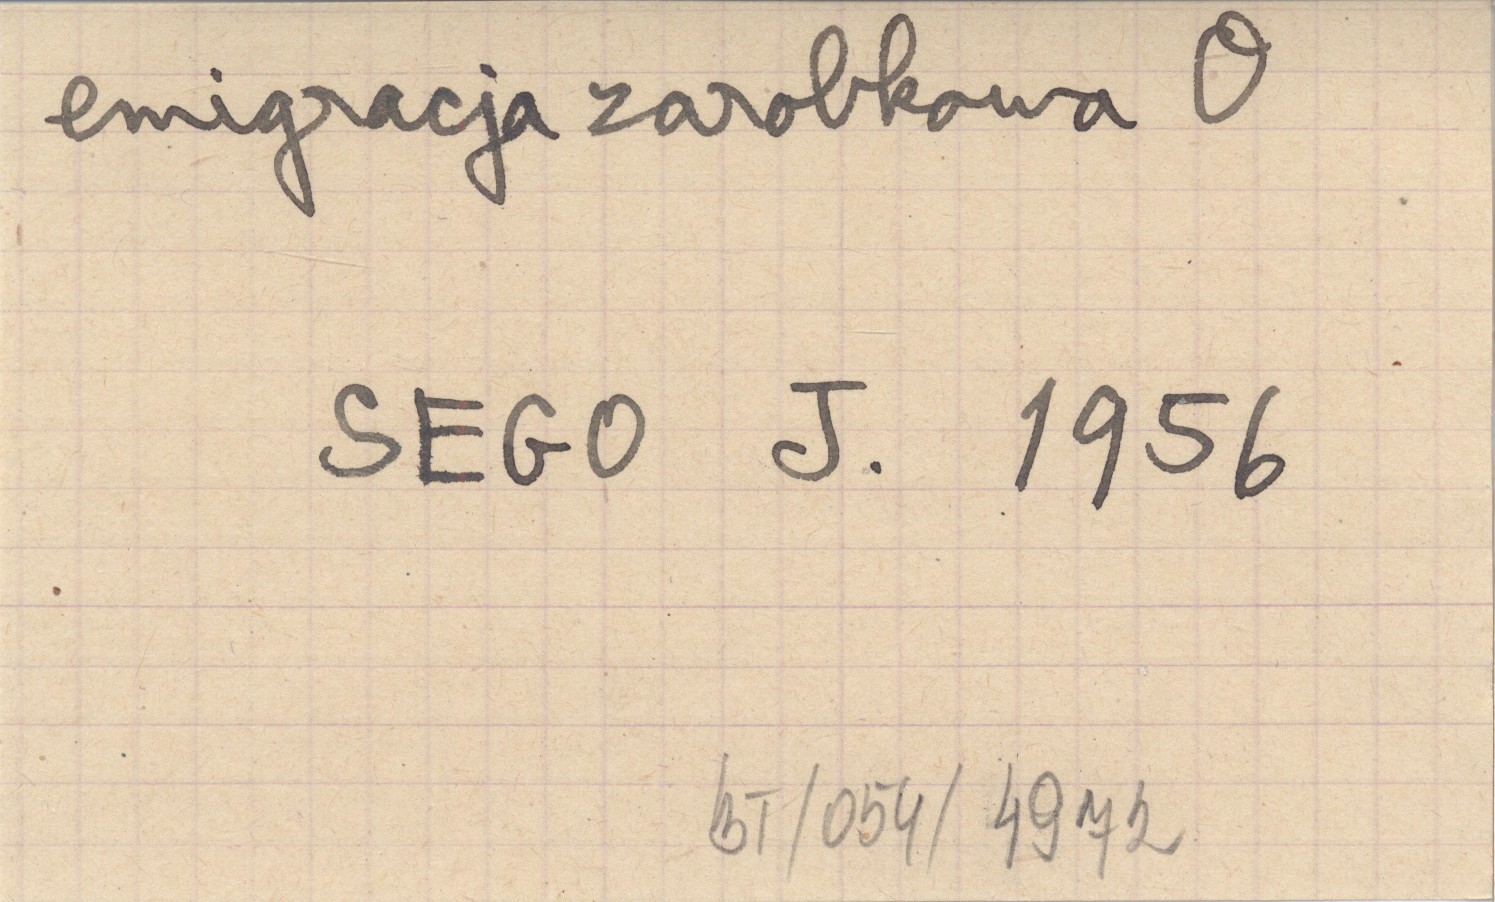 emigracja zarobkowa O
SEGO J. 1956
BT/054/4972